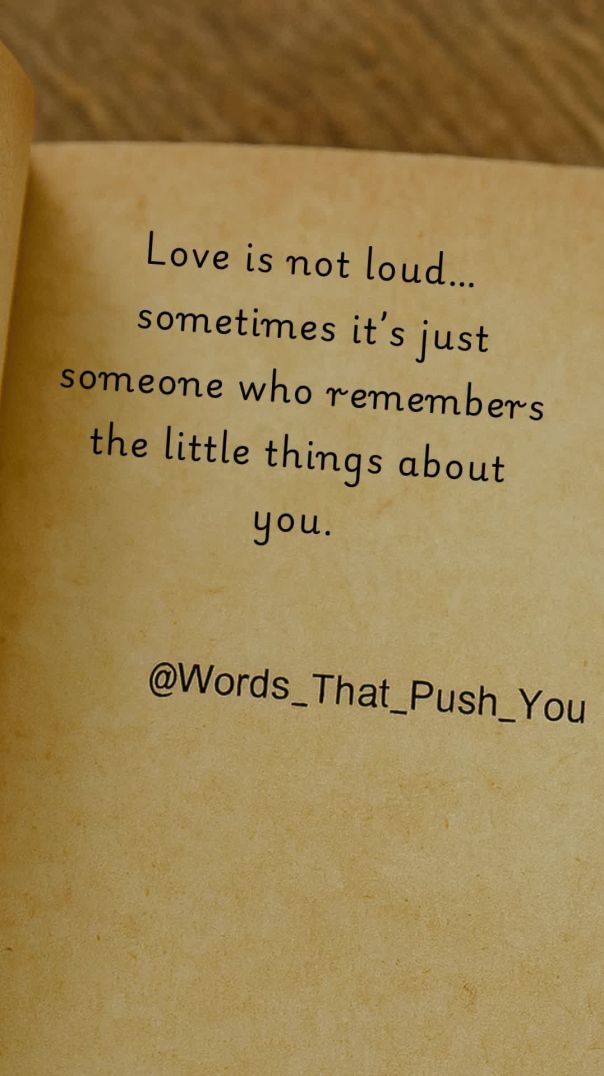 Love is not loud...
sometimes it's just
someone who remembers
the little things about
you.
@Words_That_Push_You